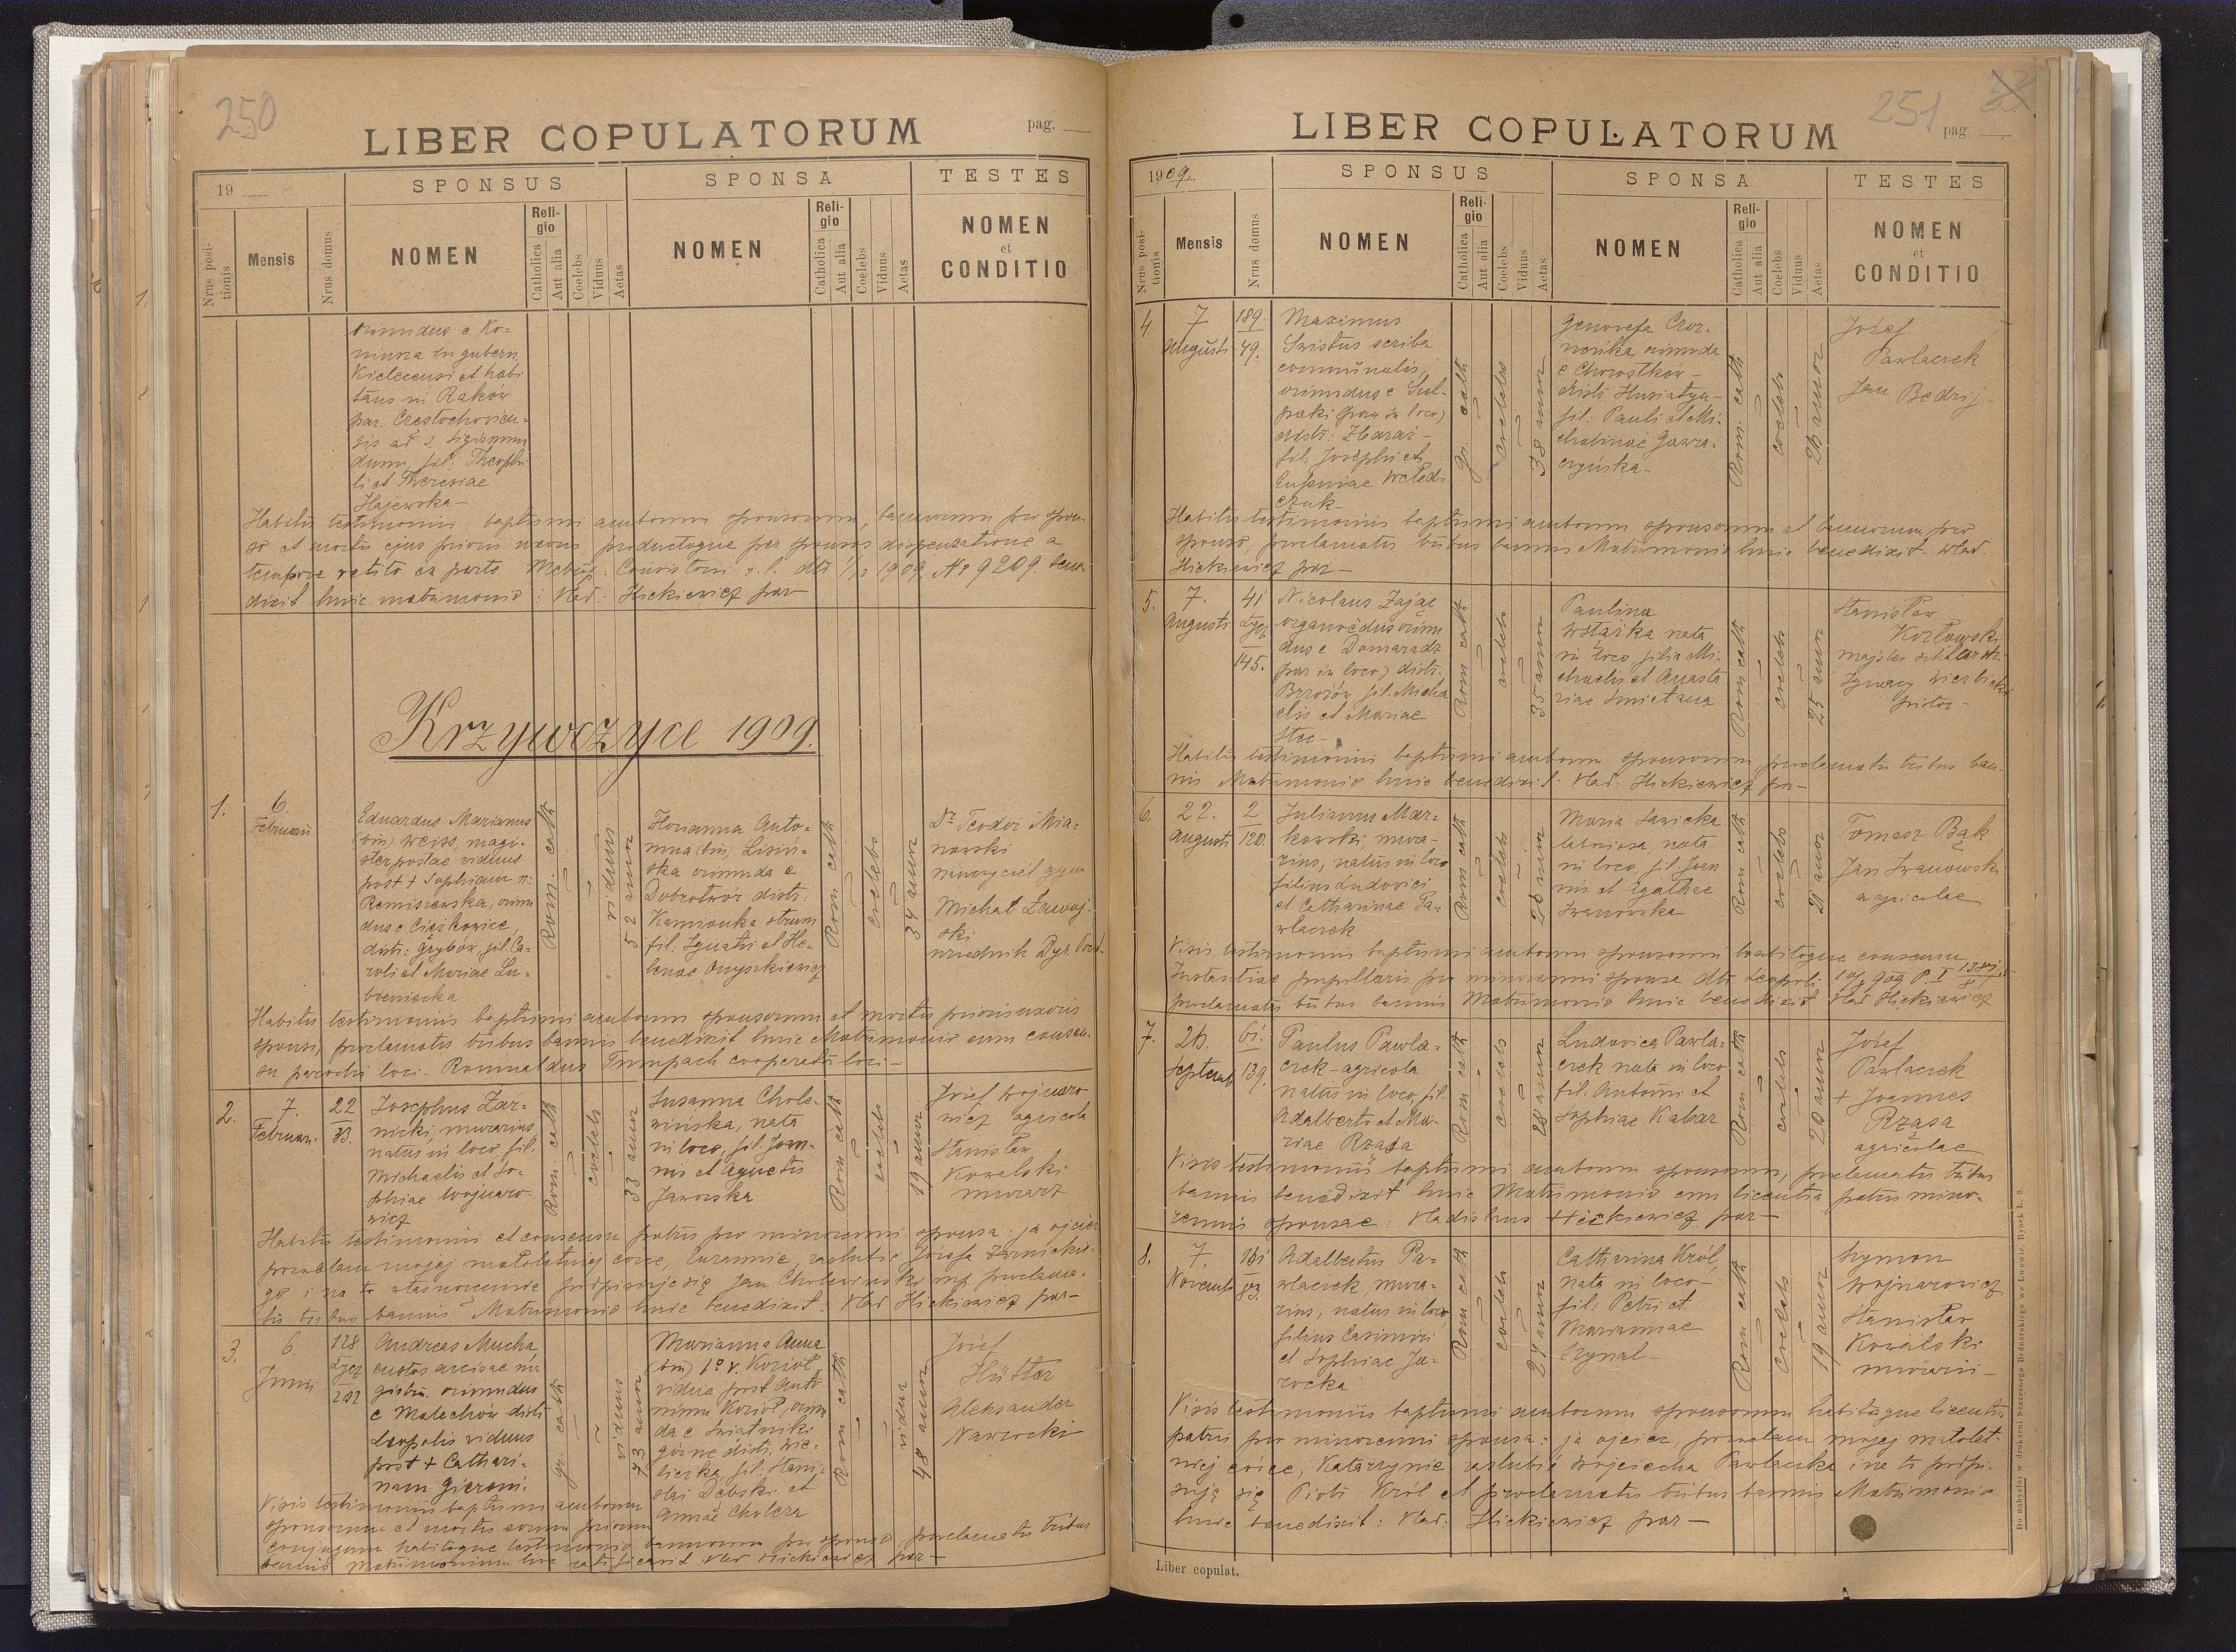 250
LIBER COPULATORUM
pag.
19
SPONSUS
SPONSA
TESTES
Nrus positionis
Mensis
Nrus domus
NOMEN
Religio
Catholica
Aut alia
Coelebs
Viduus
Aetas
NOMEN
Religio
Catholica
Aut alia
Coelebs
Viduus
Aetas
NOMEN
et
CONDITIO
oriundus e Ko-
in gubern.
Kielcensi et habi
tans in Raków
par. Częstochovien-
sis ad s. Sigismun
dum, fil: Theophi
li et Theresiae
Hajewska
Habitis testimoniis baptismi amborum sponsorum, bannorum pro spon-
so et mortis ejus prioris uxoris, productaque per sponsos dispensatione a
tempore vetito ex parte Consistorii r. l. dtt 1909 No 9209 bene
dixit huic matrimonio: Wlad: Hickiewicz par
Krzywczyce 1909.
1.
6.
Februarii
Eduardus Marianus
(bin) Weiss, magi-
ster postae viduus
post + Sophiam n:
Remiszewska, oriun
dus e Ciężkowice,
distr: Grybów, fil. Ca-
roli et Mariae Lu-
bieniecka
Rom. cath
viduus
52 annor
Florianna Anto-
nina (bin) Lisow-
ska oriunda e
Dobrotwór distr.
Kamionka strum
fil. Ignatii et He-
lenae Onyszkiewicz
Rom cath
coelebs
34 annor
Dr Teodor Mia-
nowski
nauczyciel gym
Michał Zawoj-
ski
urzędnik Dyr.
Habitis testimoniis baptismi amborum sponsorum et mortis prioris uxoris
sponsi, proclamatis tribus bannis benedixit huic Matrimonio cum consen-
su parochi loci - Romualdus Tumpach cooperator loci -
2.
7.
Februari.
22
33.
Josephus Żar-
nicki, murarius
natus in loco, fil.
Michaelis et So-
phiae Wojnaro-
wicz
Rom cath
coelebs
33 annor
Susanna Chole-
wińska, nata
in loco, fil. Joan-
nis et Agnetis
Jaworska
Rom cath
coelebs
19 annor
Józef Wojnaro
wicz agricola
Stanisław
Kowalski
murarz
Habitis testimoniis et consensu patris pro minorenni sponsa: ja ojciec
pozwalam mojej małoletniej córce, Zuzannie, zaślubić Józefa Żarnickie-
go i na to własnoręcznie podpisuję się Jan Cholewiński mp. proclama-
tis tribus bannis Matrimonio huic benedixit: Wlad Hickiewicz par -
3.
6.
Junii
128
Łycz
202
Andreas Mucha,
custos ma
gistr. oriundus
e Malechów distr
Leopolis viduus
post + Cathari-
nam Gieroni.
gr. cath
viduus
73 annor
Marianna Anna
(bin) 1o v. Kozioł
vidua post Anto
nium Kozioł, oriun
da e Świątniki
górne distr. Wie-
liczka, fil. Stani-
slai Dębski et
Annae Cholera
Rom cath
vidua
48 annor
Józef
Hütter
Aleksander
Nawrocki
Visis testimoniis baptismi amborum
sponsorum et mortis eorum priorum
conjugum habitoque testimonio bannorum pro sponso proclamatis tribus
bannis matrimonium hoc ratificavit Wlad Hickiewicz par -
251
LIBER COPULATORUM
pag
1909.
SPONSUS
SPONSA
TESTES
Nrus positionis
Mensis
Nrus domus
NOMEN
Religio
Catholica
Aut alia
Coelebs
Viduus
Aetas
NOMEN
Religio
Catholica
Aut alia
Coelebs
Viduus
Aetas
NOMEN
et
CONDITIO
4.
7
Augusti
189.
49.
Maximus
Swistus scriba
communalis,
oriundus e
(par in loco)
distr: Zbaraż -
fil: Josephi et
Eufemiae
czuk -
gr. cath
coelebs
38 annor
Genovefa Czer-
oriunda
e Chorostków -
distr Husiatyn -
fil: Pauli et Mi-
chalinae Gawra-
czyńska -
Rom. cath
coelebs
26 annor
Józef
Pawlaczek
Jan Bedrij -
Habitis testimoniis baptismi amborum sponsorum et bannorum pro
sponso, proclamatis tribus bannis Matrimonio huic benedixit. Wlad.
Hickiewicz par -
5.
7.
Augusti
41
Łycz
145.
Nicolaus Zając
organoedus oriun
dus e Domaradz
par in loco) distr.
Brzozów fil. Micha
elis et Mariae
Stec -
Rom cath
coelebs
35 annor
Paulina
Wstąźka nata
in loco filia Mi-
chaelis et Anasta
siae Smietana
Rom cath
coelebs
25 annor
Stanisław
Kozłowski
majster
Ignacy Wierzbicki
pistor -
Habitis testimoniis baptismi amborum sponsorum, proclamatis tribus ban-
nis Matrimonio huic benedixit: Wlad. Hickiewicz par -
6.
22.
Augusti
2
120.
Julianus Mar-
kowski, mura-
rius, natus in loco
filius Ludovici
et Catharinae Pa-
wlaczek
Rom cath
coelebs
Maria Sawicka
nata
in loco, fil. Joan
nis et Agathae
Iwanowska
Rom cath
coelebs
21 annor
Tomasz Bąk
Jan Iwanowski
agricolae
Visis testimoniis baptismi amborum sponsorum habitoque consensu
Instantiae pupillaris pro minorenni sponsa dtt Leopoli 909 P. I
proclamatis tribus bannis Matrimonio huic benedixit Wlad Hickiewicz
7.
26.
Septemb
61.
139.
Paulus Pawla-
czek - agricola
natus in loco, fil.
Adalberti et Ma-
riae Rząsa
Rom cath
coelebs
28 annor
Ludovica Pawla-
czek nata in loco
fil. Antonii et
Sophiae Kabar
Rom cath
coelebs
20 annor
Józef
Pawlaczek
+ Joannes
Rząsa
agricolae
Visis testimoniis baptismi amborum sponsorum, proclamatis tribus
bannis benedixit huic Matrimonio cum licentia patris mino-
rennis sponsae: Wladislaus Hickiewicz par -
8.
7.
Novemb
161
83.
Adalbertus Pa-
wlaczek, mura-
rius, natus in loco
filius Casimiri
et Sophiae Ja-
rocka
Rom cath
coelebs
24 annor
Catharina Król,
nata in loco -
fil: Petri et
Mariannae
Szynal -
Rom cath
coelebs
19 annor
Szymon
Wojnarowicz
Stanisław
Kowalski
murarii -
Visis testimoniis baptismi amborum sponsorum habitaque licentia
patris pro minorenni sponsa: ja ojciec, pozwalam mojej małolet-
niej córce, Katarzynie zaślubić Wojciecha Pawlaczka i na to podpi-
suję się Piotr Król et proclamatis tribus bannis Matrimonio
huic benedixit: Wlad: Hickiewicz par -
Liber copulat.
Do nabycia w drukarni Szczęsnego Bednarskiego we Lwowie, Rynek l. 9.